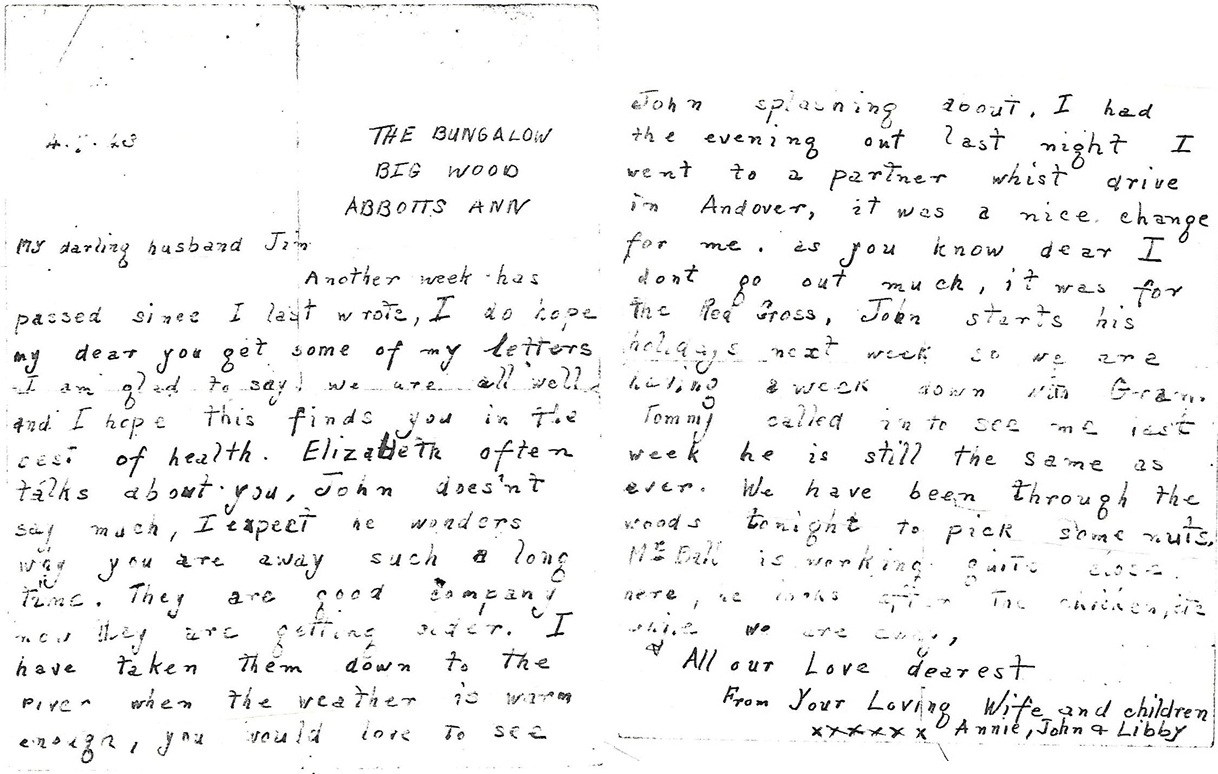 THE BUNGALOW
BIG WOOD
ABBOTTS ANN
My darling husband Jim
Another week has
passed since I last wrote, I do hope
my dear you get some of my letters
I am glad to say we are all well
and I hope this finds you in the
best of health. Elizabeth often
talks about you, John doesn't
say much, I expect he wonders
why you are away such a long
time. They are good company
now they are getting older. I
have taken them down to the
river when the weather is warm
enough, you would love to see
John splashing about. I had
the evening out last night I
went to a partner whist drive
in Andover, it was a nice change
for me. as you know dear I
dont go out much, it was for
the Red Cross, John starts his
holidays next week so we are
having a week down with Gran.
Tommy called in to see me last
week he is still the same as
ever. We have been through the
woods tonight to pick some nuts,
is working quite close
here, he looks after the chicken, etc
while we are away,
All our Love dearest
From Your Loving Wife and children
xxxxxx Annie, John & Libby